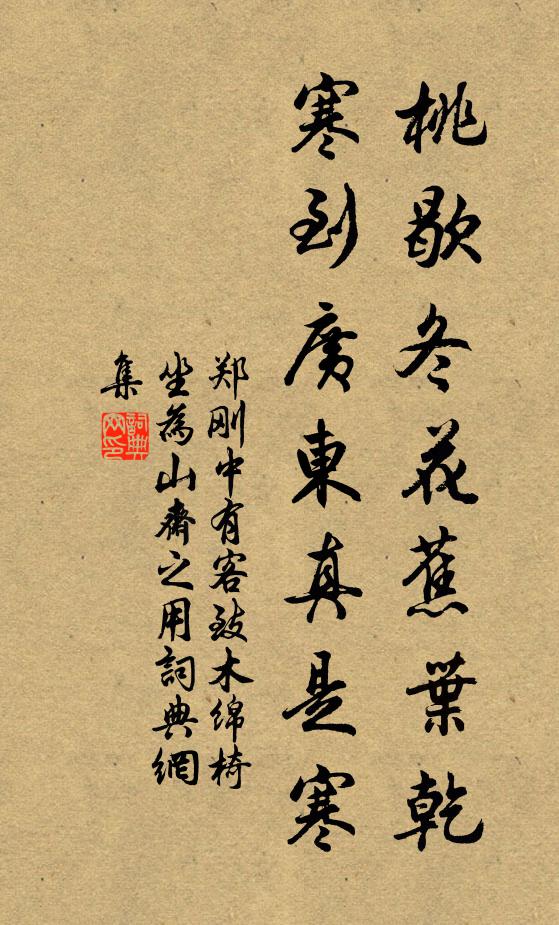 桃歇冬花蕉葉乾
寒到廣東真是寒
郑刚中有客致木绵椅
坐為山齋之用詞典網
集
詞典
網印